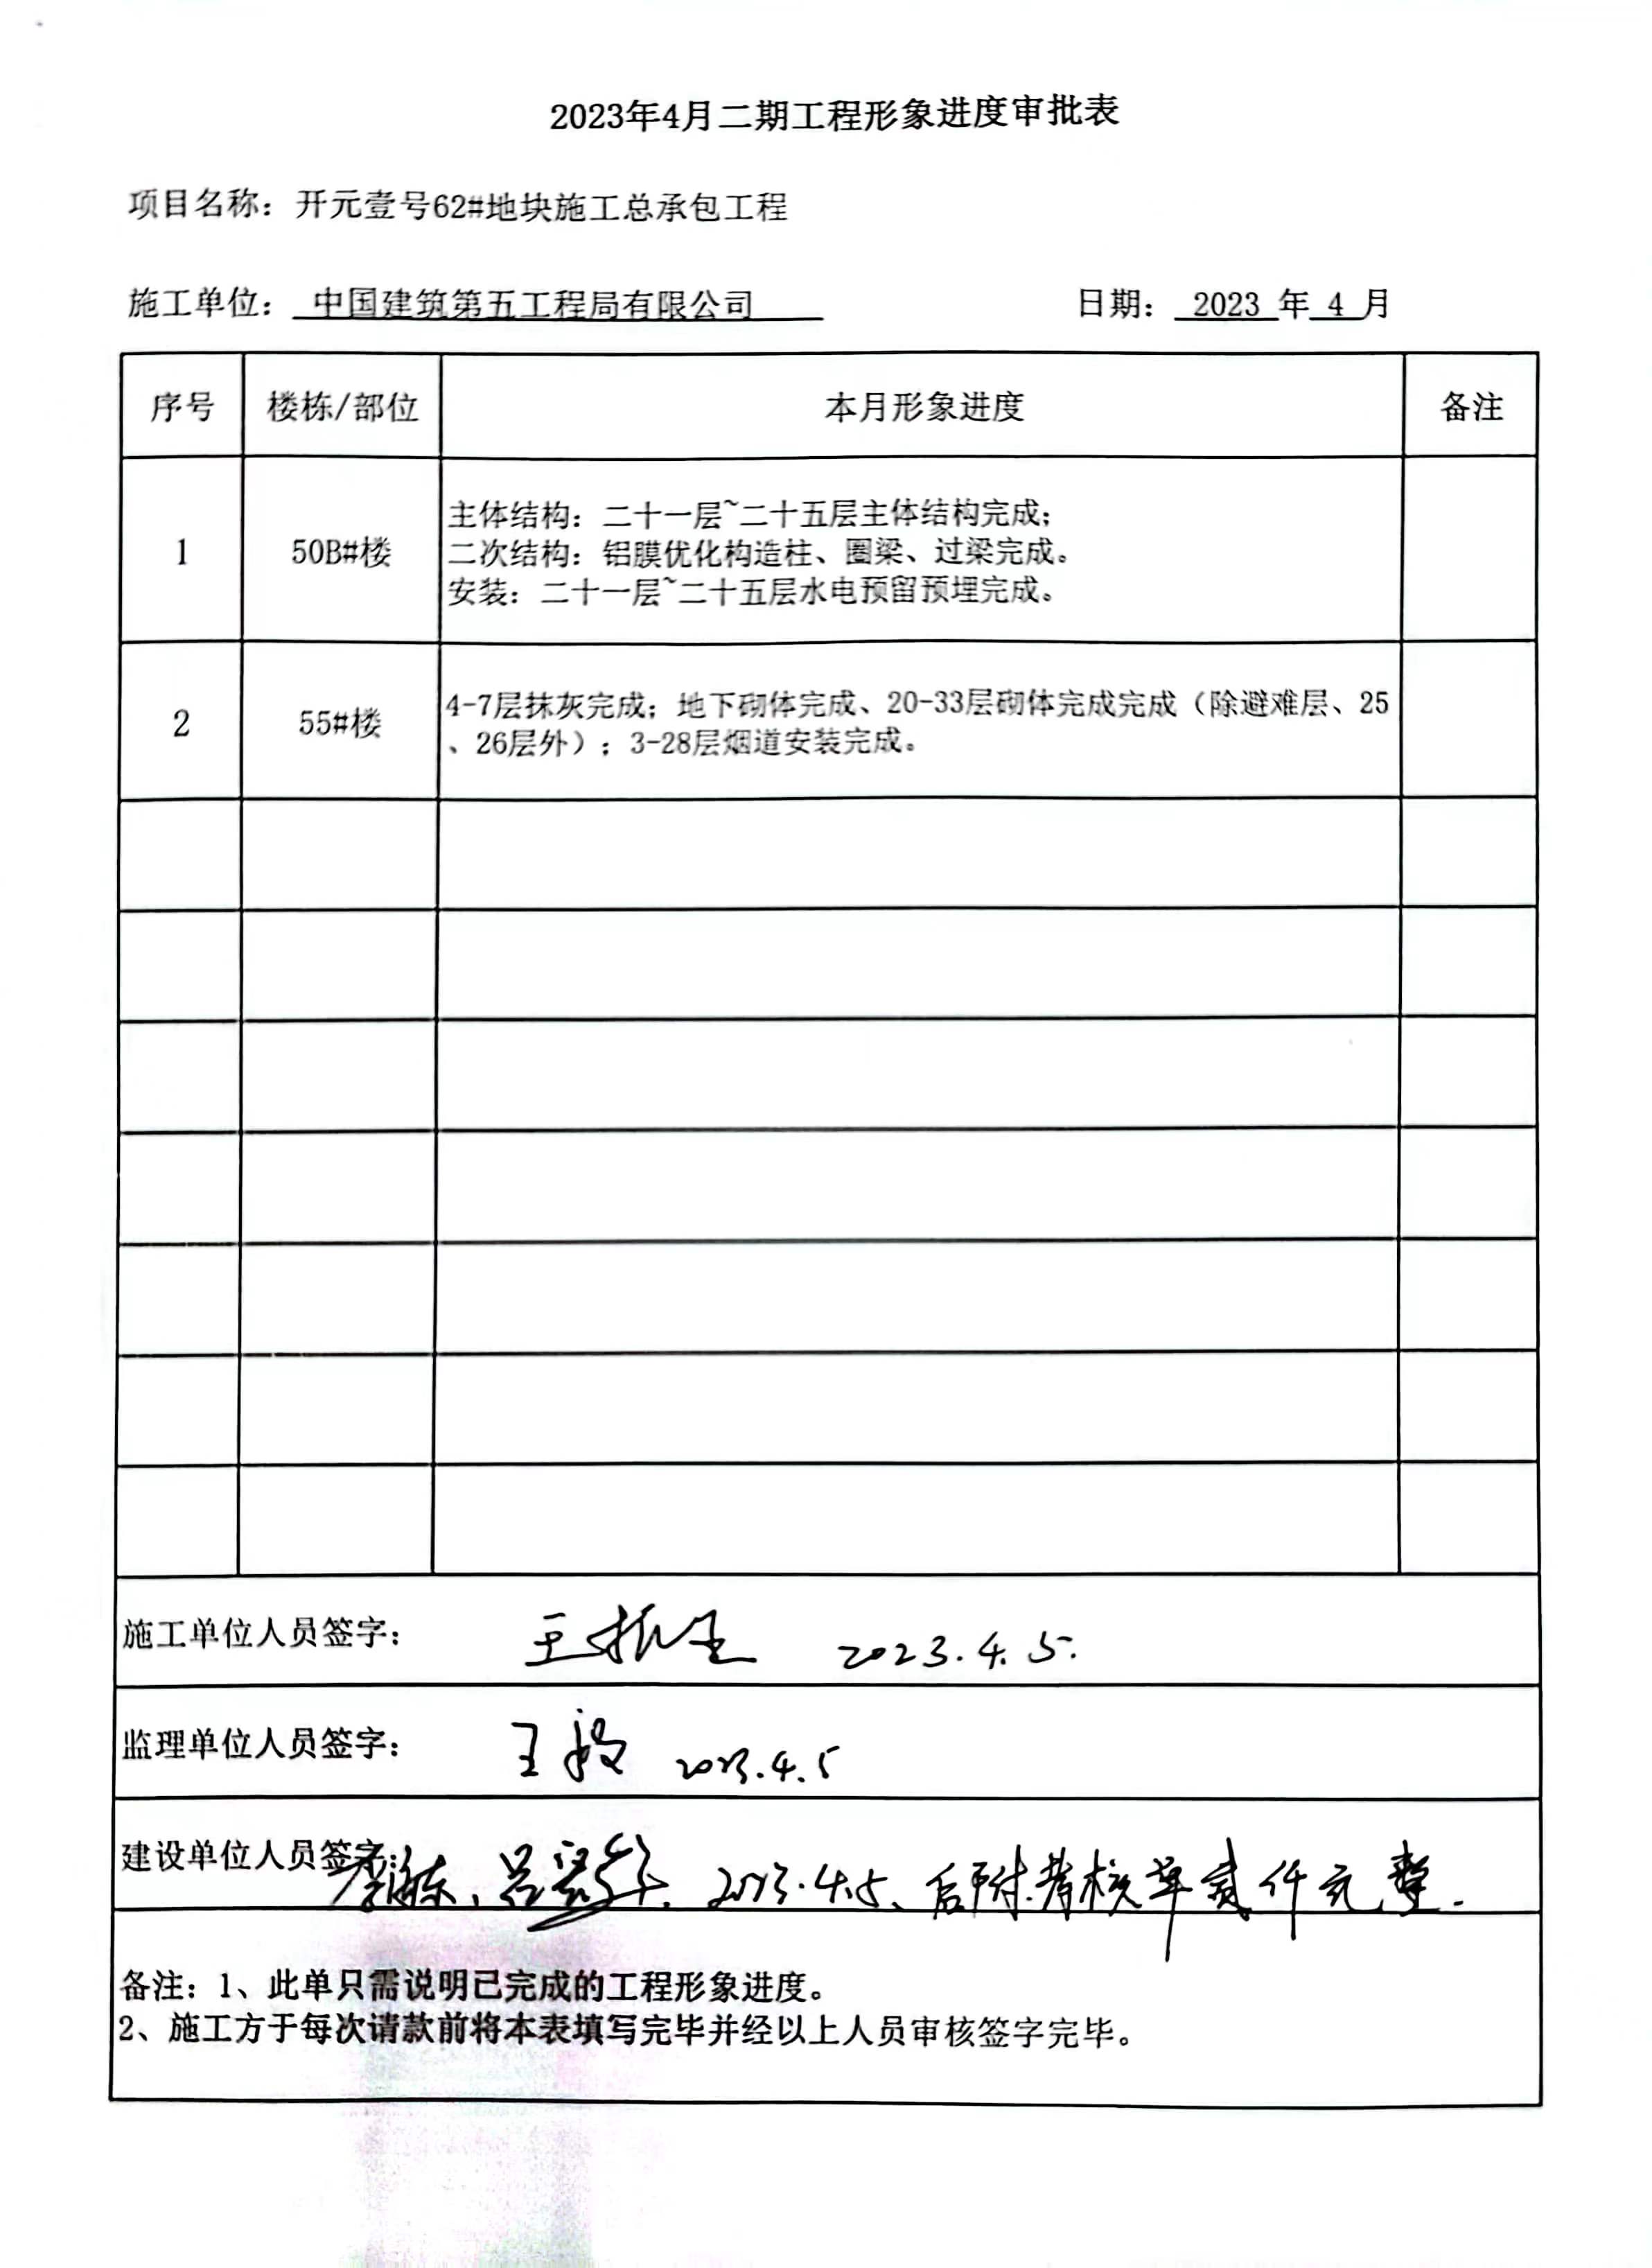 2023年4月二期工程形象进度审批表
项目名称：开元壹号62#地块施工总承包工程
施工单位： 中国建筑第五工程局有限公司 日期： 2023 年 4 月
序号 楼栋/部位 本月形象进度 备注
1 50B#楼
主体结构：二十一层~二十五层主体结构完成；
二次结构：铝膜优化构造柱、圈梁、过梁完成。
安装：二十一层~二十五层水电预留预埋完成。
2 55#楼
4-7层抹灰完成；地下砌体完成、20-33层砌体完成完成（除避难层、25
、26层外）；3-28层烟道安装完成。
施工单位人员签字： 2023.4.5.
监理单位人员签字： 王 2023.4.5
建设单位人员签字： 2023.4.5、后附考核单贰仟元整.
备注：1、此单只需说明已完成的工程形象进度。
2、施工方于每次请款前将本表填写完毕并经以上人员审核签字完毕。